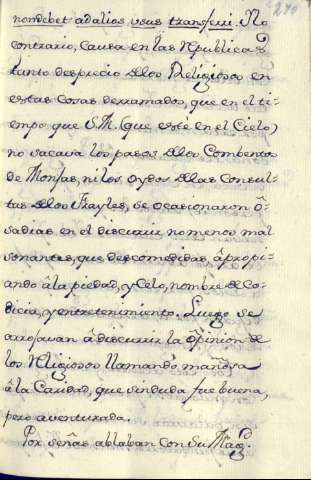 270
non debet ad alios usus transferri. Lo
contrario, causa en las Republicas
tanto desprecio de los Religiosos en
estas cosas derramados, que en el ti-
empo que S.M. (que esté en el Cielo)
no sacava los pasos de los Combentos
de Monjas, ni los oydos de las Consul-
tas de los Frayles, se ocasionaron ô-
sadias en el discurrir no menos mal
sonantes, que descomedidas, âpropi-
ando â la piedad, y Celo, nombre de Co-
dicia, y entretenimiento. Luego se
arrojavan â discurrir la ôpinion de
los Religiosos llamando mañosa
â la Caridad, que sin duda fue buena,
pero aventurada.
Por señas ablaban con Su Mag.d